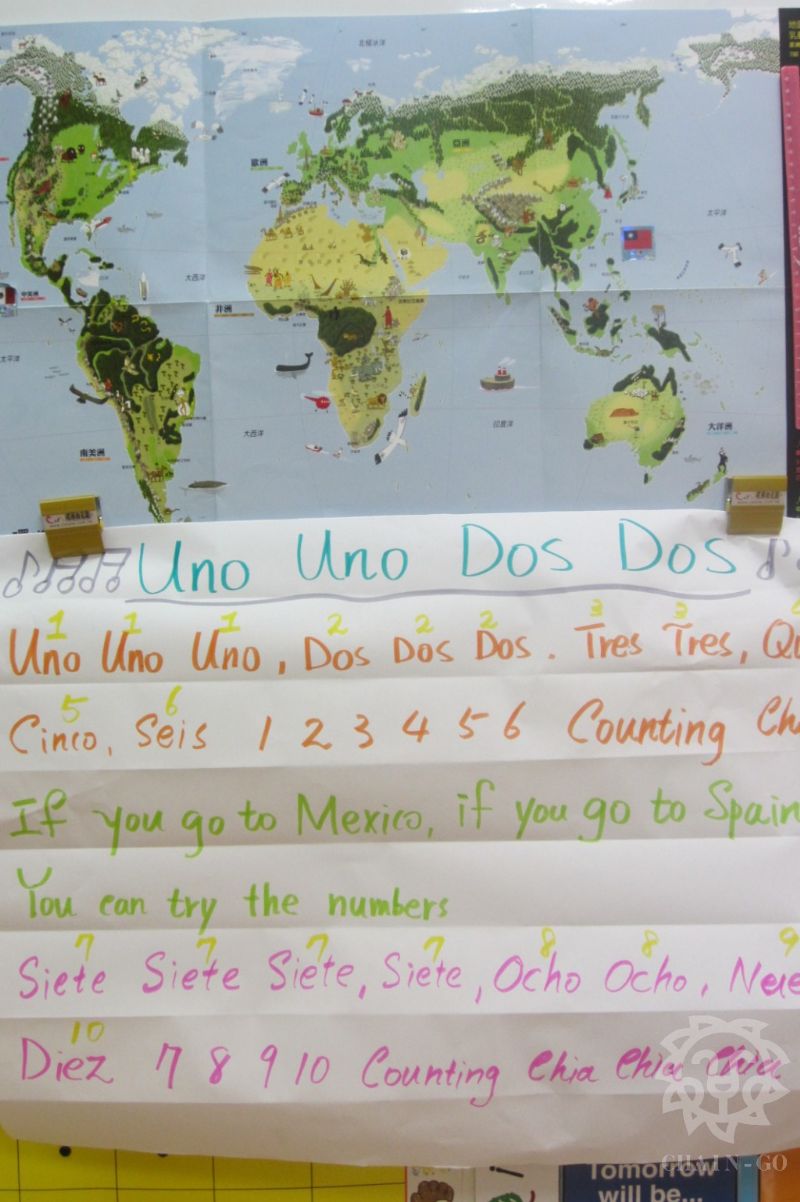 北極冰洋
歐洲
亞洲
太平洋
大西洋
中美洲
非洲
太平洋
大西洋
印度洋
南美洲
大洋洲
Uno Uno Dos Dos
1 1 1 2 2 2 3 3
Uno Uno Uno, Dos Dos Dos. Tres Tres, Qu
5 6
Cinco, Seis 1 2 3 4 5 6 Counting Ch
If you go to Mexico, if you go to Spain
You can try the numbers
7 7 7 7 8 8 9
Siete Siete Siete, Siete, Ocho Ocho, Nue
10
Diez 7 8 9 10 Counting Chia Chia Chia
CHAIN-GO
Tomorrow
will be...